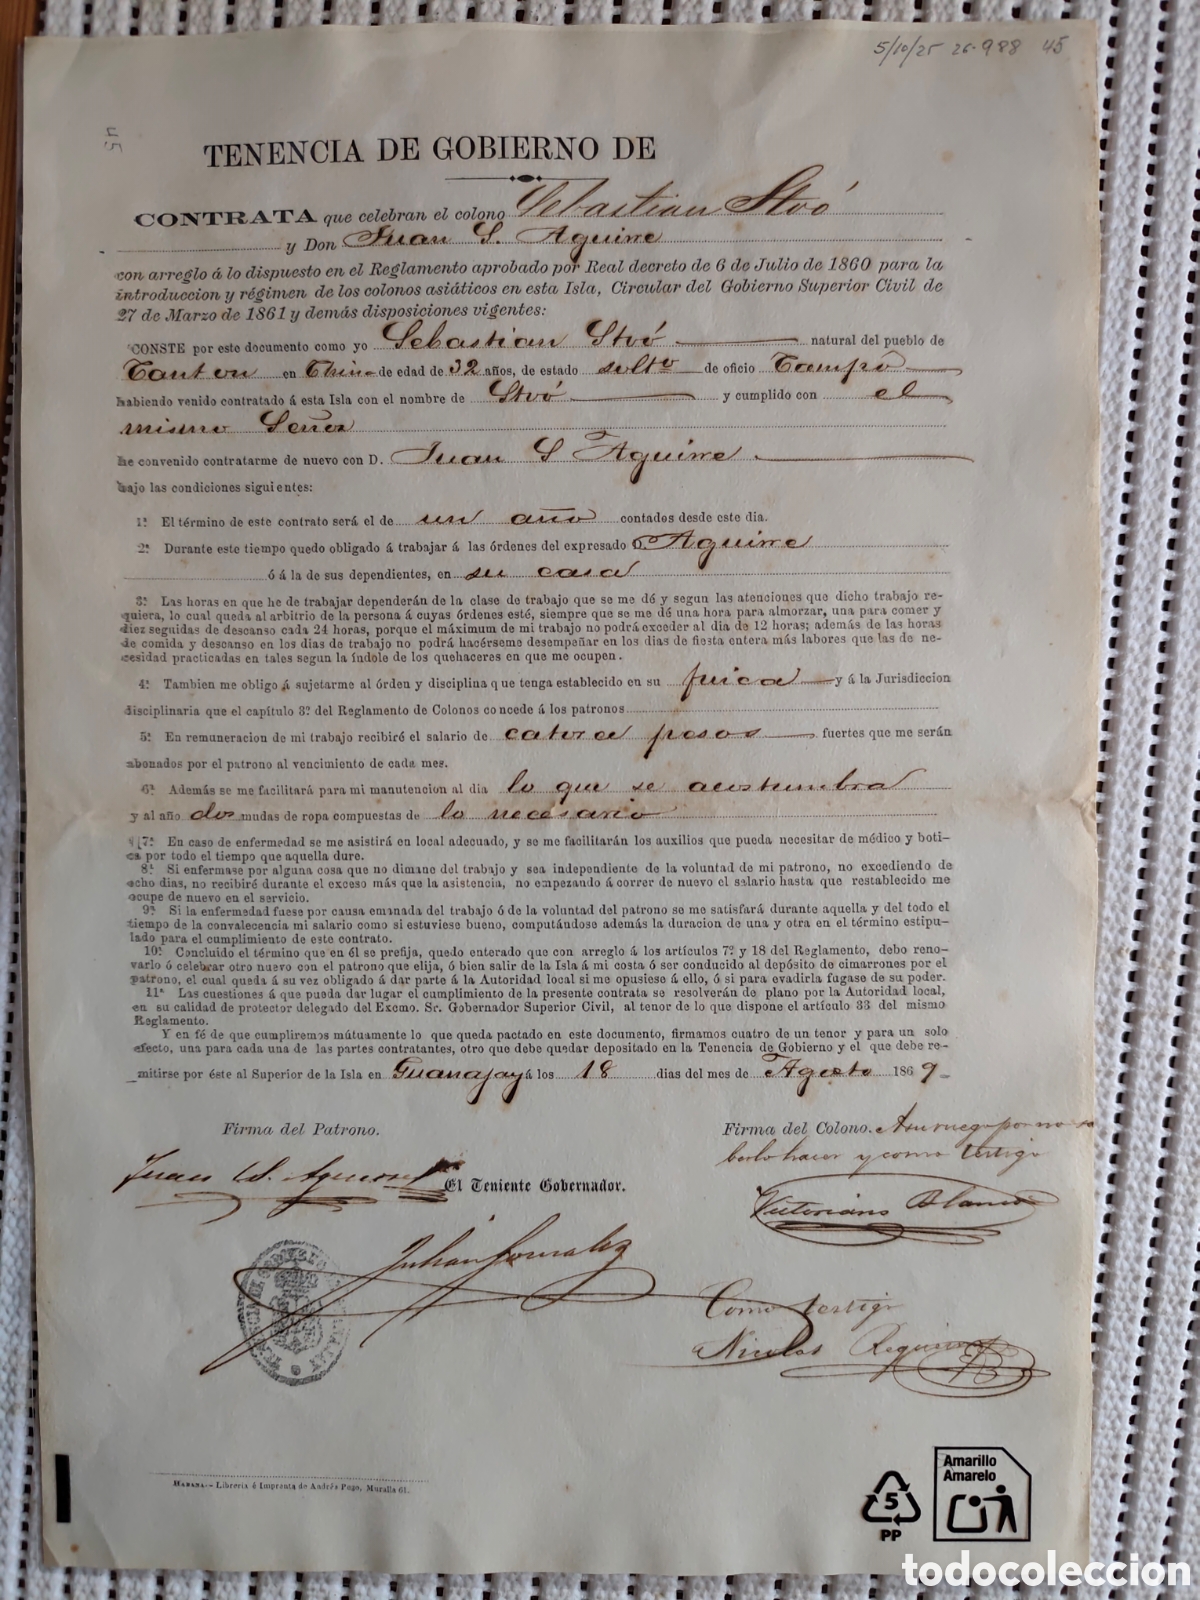 5/10/25 26-988 45
45
TENENCIA DE GOBIERNO DE
CONTRATA que celebran el colono Sebastian Stvó
y Don Juan S. Aguirre
con arreglo á lo dispuesto en el Reglamento aprobado por Real decreto de 6 de Julio de 1860 para la
introduccion y régimen de los colonos asiáticos en esta Isla, Circular del Gobierno Superior Civil de
27 de Marzo de 1861 y demás disposiciones vigentes:
CONSTE por este documento como yo Sebastian Stvó natural del pueblo de
Canton en China de edad de 32 años, de estado solto de oficio Campo
habiendo venido contratado á esta Isla con el nombre de Stvó y cumplido con el
mismo Señor
he convenido contratarme de nuevo con D. Juan S Aguirre
bajo las condiciones siguientes:
1ª El término de este contrato será el de un año contados desde este dia.
2ª Durante este tiempo quedo obligado á trabajar á las órdenes del expresado Aguirre
ó á la de sus dependientes, en su casa
3ª Las horas en que he de trabajar dependerán de la clase de trabajo que se me dé y segun las atenciones que dicho trabajo re-
quiera, lo cual queda al arbitrio de la persona á cuyas órdenes esté, siempre que se me dé una hora para almorzar, una para comer y
diez seguidas de descanso cada 24 horas, porque el máximum de mi trabajo no podrá exceder al dia de 12 horas; además de las horas
de comida y descanso en los dias de trabajo no podrá hacérseme desempeñar en los dias de fiesta entera más labores que las de ne-
cesidad practicadas en tales segun la índole de los quehaceres en que me ocupen.
4ª Tambien me obligo á sujetarme al órden y disciplina que tenga establecido en su finca y á la Jurisdiccion
disciplinaria que el capítulo 3º del Reglamento de Colonos concede á los patronos
5ª En remuneracion de mi trabajo recibiré el salario de catorce pesos fuertes que me serán
abonados por el patrono al vencimiento de cada mes.
6ª Además se me facilitará para mi manutencion al dia lo que se acostumbra
y al año dos mudas de ropa compuestas de lo necesario
7ª En caso de enfermedad se me asistirá en local adecuado, y se me facilitarán los auxilios que pueda necesitar de médico y boti-
ca por todo el tiempo que aquella dure.
8ª Si enfermase por alguna cosa que no dimane del trabajo y sea independiente de la voluntad de mi patrono, no excediendo de
ocho dias, no recibiré durante el exceso más que la asistencia, no empezando á correr de nuevo el salario hasta que restablecido me
ocupe de nuevo en el servicio.
9ª Si la enfermedad fuese por causa emanada del trabajo ó de la voluntad del patrono se me satisfará durante aquella y del todo el
tiempo de la convalecencia mi salario como si estuviese bueno, computándose además la duracion de una y otra en el término estipu-
lado para el cumplimiento de este contrato.
10ª Concluido el término que en él se prefija, quedo enterado que con arreglo á los artículos 7º y 18 del Reglamento, debo reno-
varlo ó celebrar otro nuevo con el patrono que elija, ó bien salir de la Isla á mi costa ó ser conducido al depósito de cimarrones por el
patrono, el cual queda á su vez obligado á dar parte á la Autoridad local si me opusiese á ello, ó si para evadirla fugase de su poder.
11ª Las cuestiones á que pueda dar lugar el cumplimiento de la presente contrata se resolverán de plano por la Autoridad local,
en su calidad de protector delegado del Excmo. Sr. Gobernador Superior Civil, al tenor de lo que dispone el artículo 33 del mismo
Reglamento.
Y en fé de que cumpliremos mútuamente lo que queda pactado en este documento, firmamos cuatro de un tenor y para un solo
efecto, una para cada una de las partes contratantes, otro que debe quedar depositado en la Tenencia de Gobierno y el que debe re-
mitirse por éste al Superior de la Isla en Guanajay á los 18 dias del mes de Agosto 1869
Firma del Patrono. Firma del Colono. A su ruego por no sa
berlo hacer y como testigo
Juan S. Aguirre
El Teniente Gobernador.
Victoriano Blanco
Julian Gonzalez
Como testigo
Nicolas Requi
TENENCIA DE GOBIERNO
HABANA.—Libreria é Imprenta de Andrés Pego, Muralla 61.
5
PP
Amarillo
Amarelo
todocoleccion